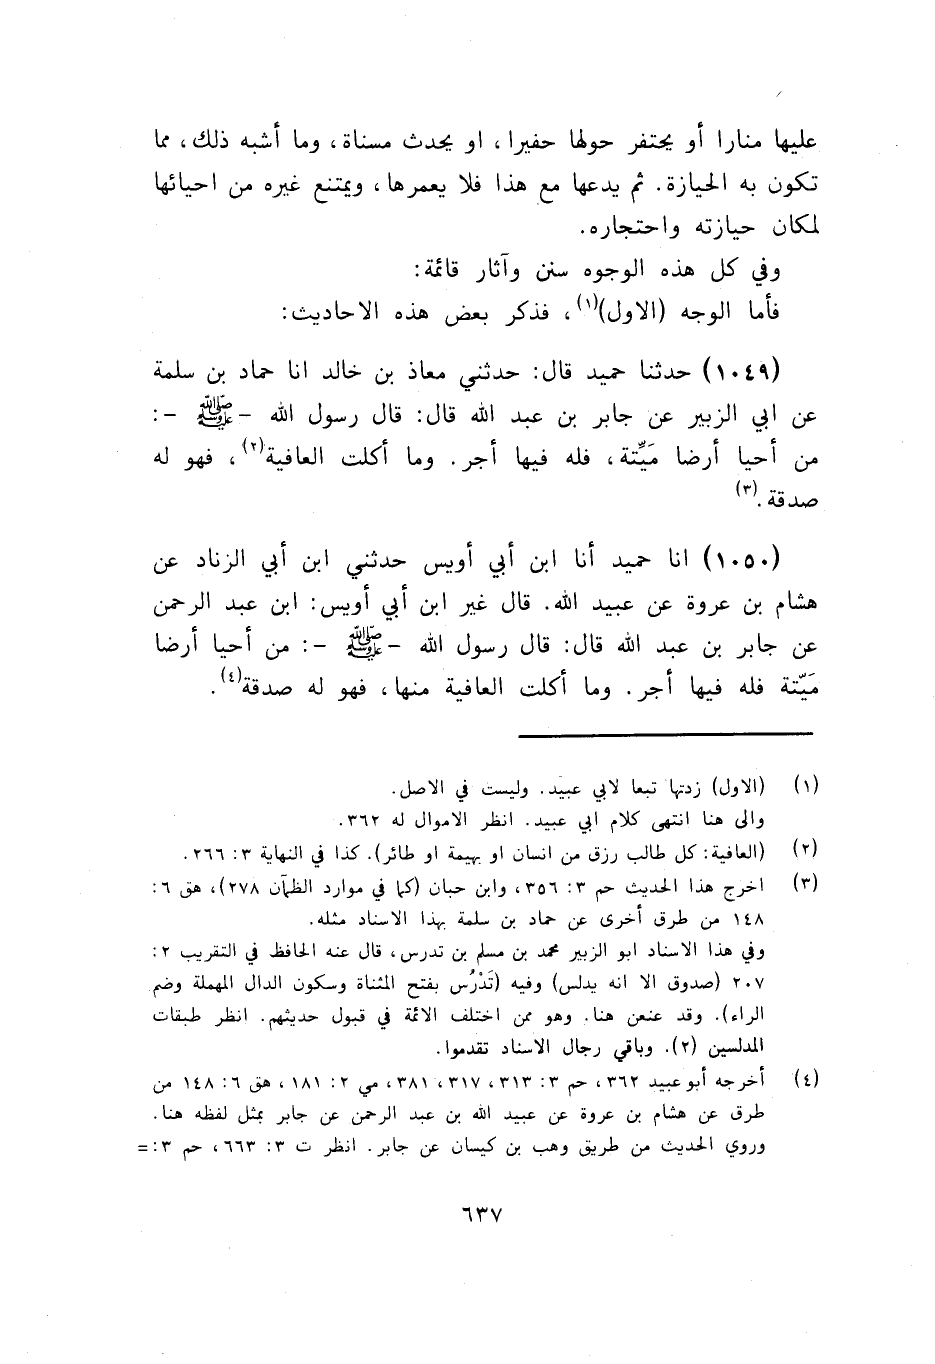 عليها منارا أو يحتفر حولها حفيرا، او يحدث مسناة، وما أشبه ذلك، مما
تكون به الحيازة. ثم يدعها مع هذا فلا يعمرها، ويمتنع غيره من احيائها
لمكان حيازته واحتجاره.
وفي كل هذه الوجوه سنن وآثار قائمة:
فأما الوجه (الاول)(١)، فذكر بعض هذه الاحاديث:
(١٠٤٩) حدثنا حميد قال: حدثني معاذ بن خالد انا حماد بن سلمة
عن ابي الزبير عن جابر بن عبد الله قال: قال رسول الله - ﷺ -:
من أحيا أرضا مَيِّتة، فله فيها أجر. وما أكلت العافية(٢)، فهو له
صدقة.(٣)
(١٠٥٠) انا حميد أنا ابن أبي أويس حدثني ابن أبي الزناد عن
هشام بن عروة عن عبيد الله. قال غير ابن أبي أويس: ابن عبد الرحمن
عن جابر بن عبد الله قال: قال رسول الله - ﷺ -: من أحيا أرضا
مَيّتة فله فيها أجر. وما أكلت العافية منها، فهو له صدقة(٤).
(١) (الاول) زدتها تبعا لابي عبيد. وليست في الاصل.
والى هنا انتهى كلام ابي عبيد. انظر الاموال له ٣٦٢.
(٢) (العافية: كل طالب رزق من انسان او بهيمة او طائر). كذا في النهاية ٣: ٢٦٦.
(٣) اخرج هذا الحديث حم ٣: ٣٥٦، وابن حبان (كما في موارد الظمآن ٢٧٨)، هق ٦:
١٤٨ من طرق أخرى عن حماد بن سلمة بهذا الاسناد مثله.
وفي هذا الاسناد ابو الزبير محمد بن مسلم بن تدرس، قال عنه الحافظ في التقريب ٢:
٢٠٧ (صدوق الا انه يدلس) وفيه (تَدْرُس بفتح المثناة وسكون الدال المهملة وضم
الراء). وقد عنعن هنا. وهو ممن اختلف الائمة في قبول حديثهم. انظر طبقات
المدلسين (٢). وباقي رجال الاسناد تقدموا.
(٤) أخرجه أبو عبيد ٣٦٢، حم ٣: ٣١٣، ٣١٧، ٣٨١، مي ٢: ١٨١، هق ٦: ١٤٨ من
طرق عن هشام بن عروة عن عبيد الله بن عبد الرحمن عن جابر بمثل لفظه هنا.
وروي الحديث من طريق وهب بن كيسان عن جابر. انظر ت ٣: ٦٦٣، حم ٣: =
٦٣٧